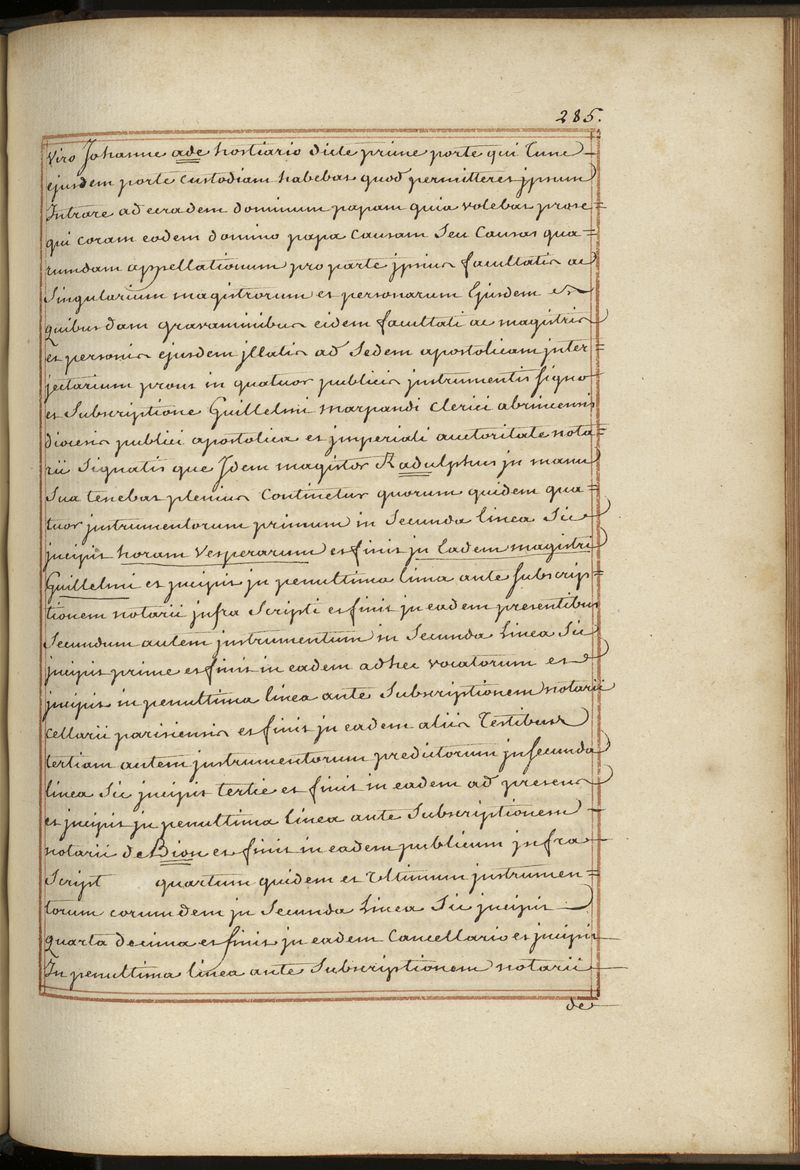 285.
Viro Johanne ade hostiario dicte prime porte qui tunc
ejusdem porte custodiam habebat quod permitteret jpsum
Intrare ad eradem dominum papam quia volebat prose=
qui coram eodem domino papa causam Seu Causas qua=
rumdam appellationum pro parte jpsius facultatis ac
Singularium magistrorum et personarum Ejusdem ex
quibusdam gravaminibus eidem facultati ac magistris
et personis ejusdem jllatis ad Sedem apostolicam jnter=
jectarium prout in quatuor publicis jnstrumentis signo
et Subscriptione Guillelmi marpandi Clerici abrincensis
diocesis publici apostolica et jmperiali auctoritate nota=
rii Signatis que Jdem magister Radulphus jn manu
Sua tenebat plenius Continetur quorum quidem qua=
tuor jnstrumentorum primum in Secunda linea Sic
jncipit horam Vesperarum et finit jn Eadem magistri
Guillelmi et jncipit jn penultima linea ante Subscrip=
tionem notarii jnfra Scripti et finit jn eadem presentibus
Secundum autem jnstrumentum in Secunda Linea Sic
jncipit prime et finit in eadem adhec vocatorum et
jncipit in penultima linea ante Subscriptionem notarii
cellarii parisiensis et finit jn eadem aliis Testibus
tertiam autem jnstrumentorum predictorum jn secunda
linea Sic jncipit tertie et finit in eadem ad presens
et jncipit jn penultima Linea ante Subscriptionem
notarii de Bion et finit in eadem publicum jnfra
Script quartum quidem et Ultimum jnstrumen=
torum eorumdem jn Secunda Linea Sic jncipit
quarta decima et finit jn eadem Cancellario et jncipit
In penultima linea ante Subscriptionem notarii
de